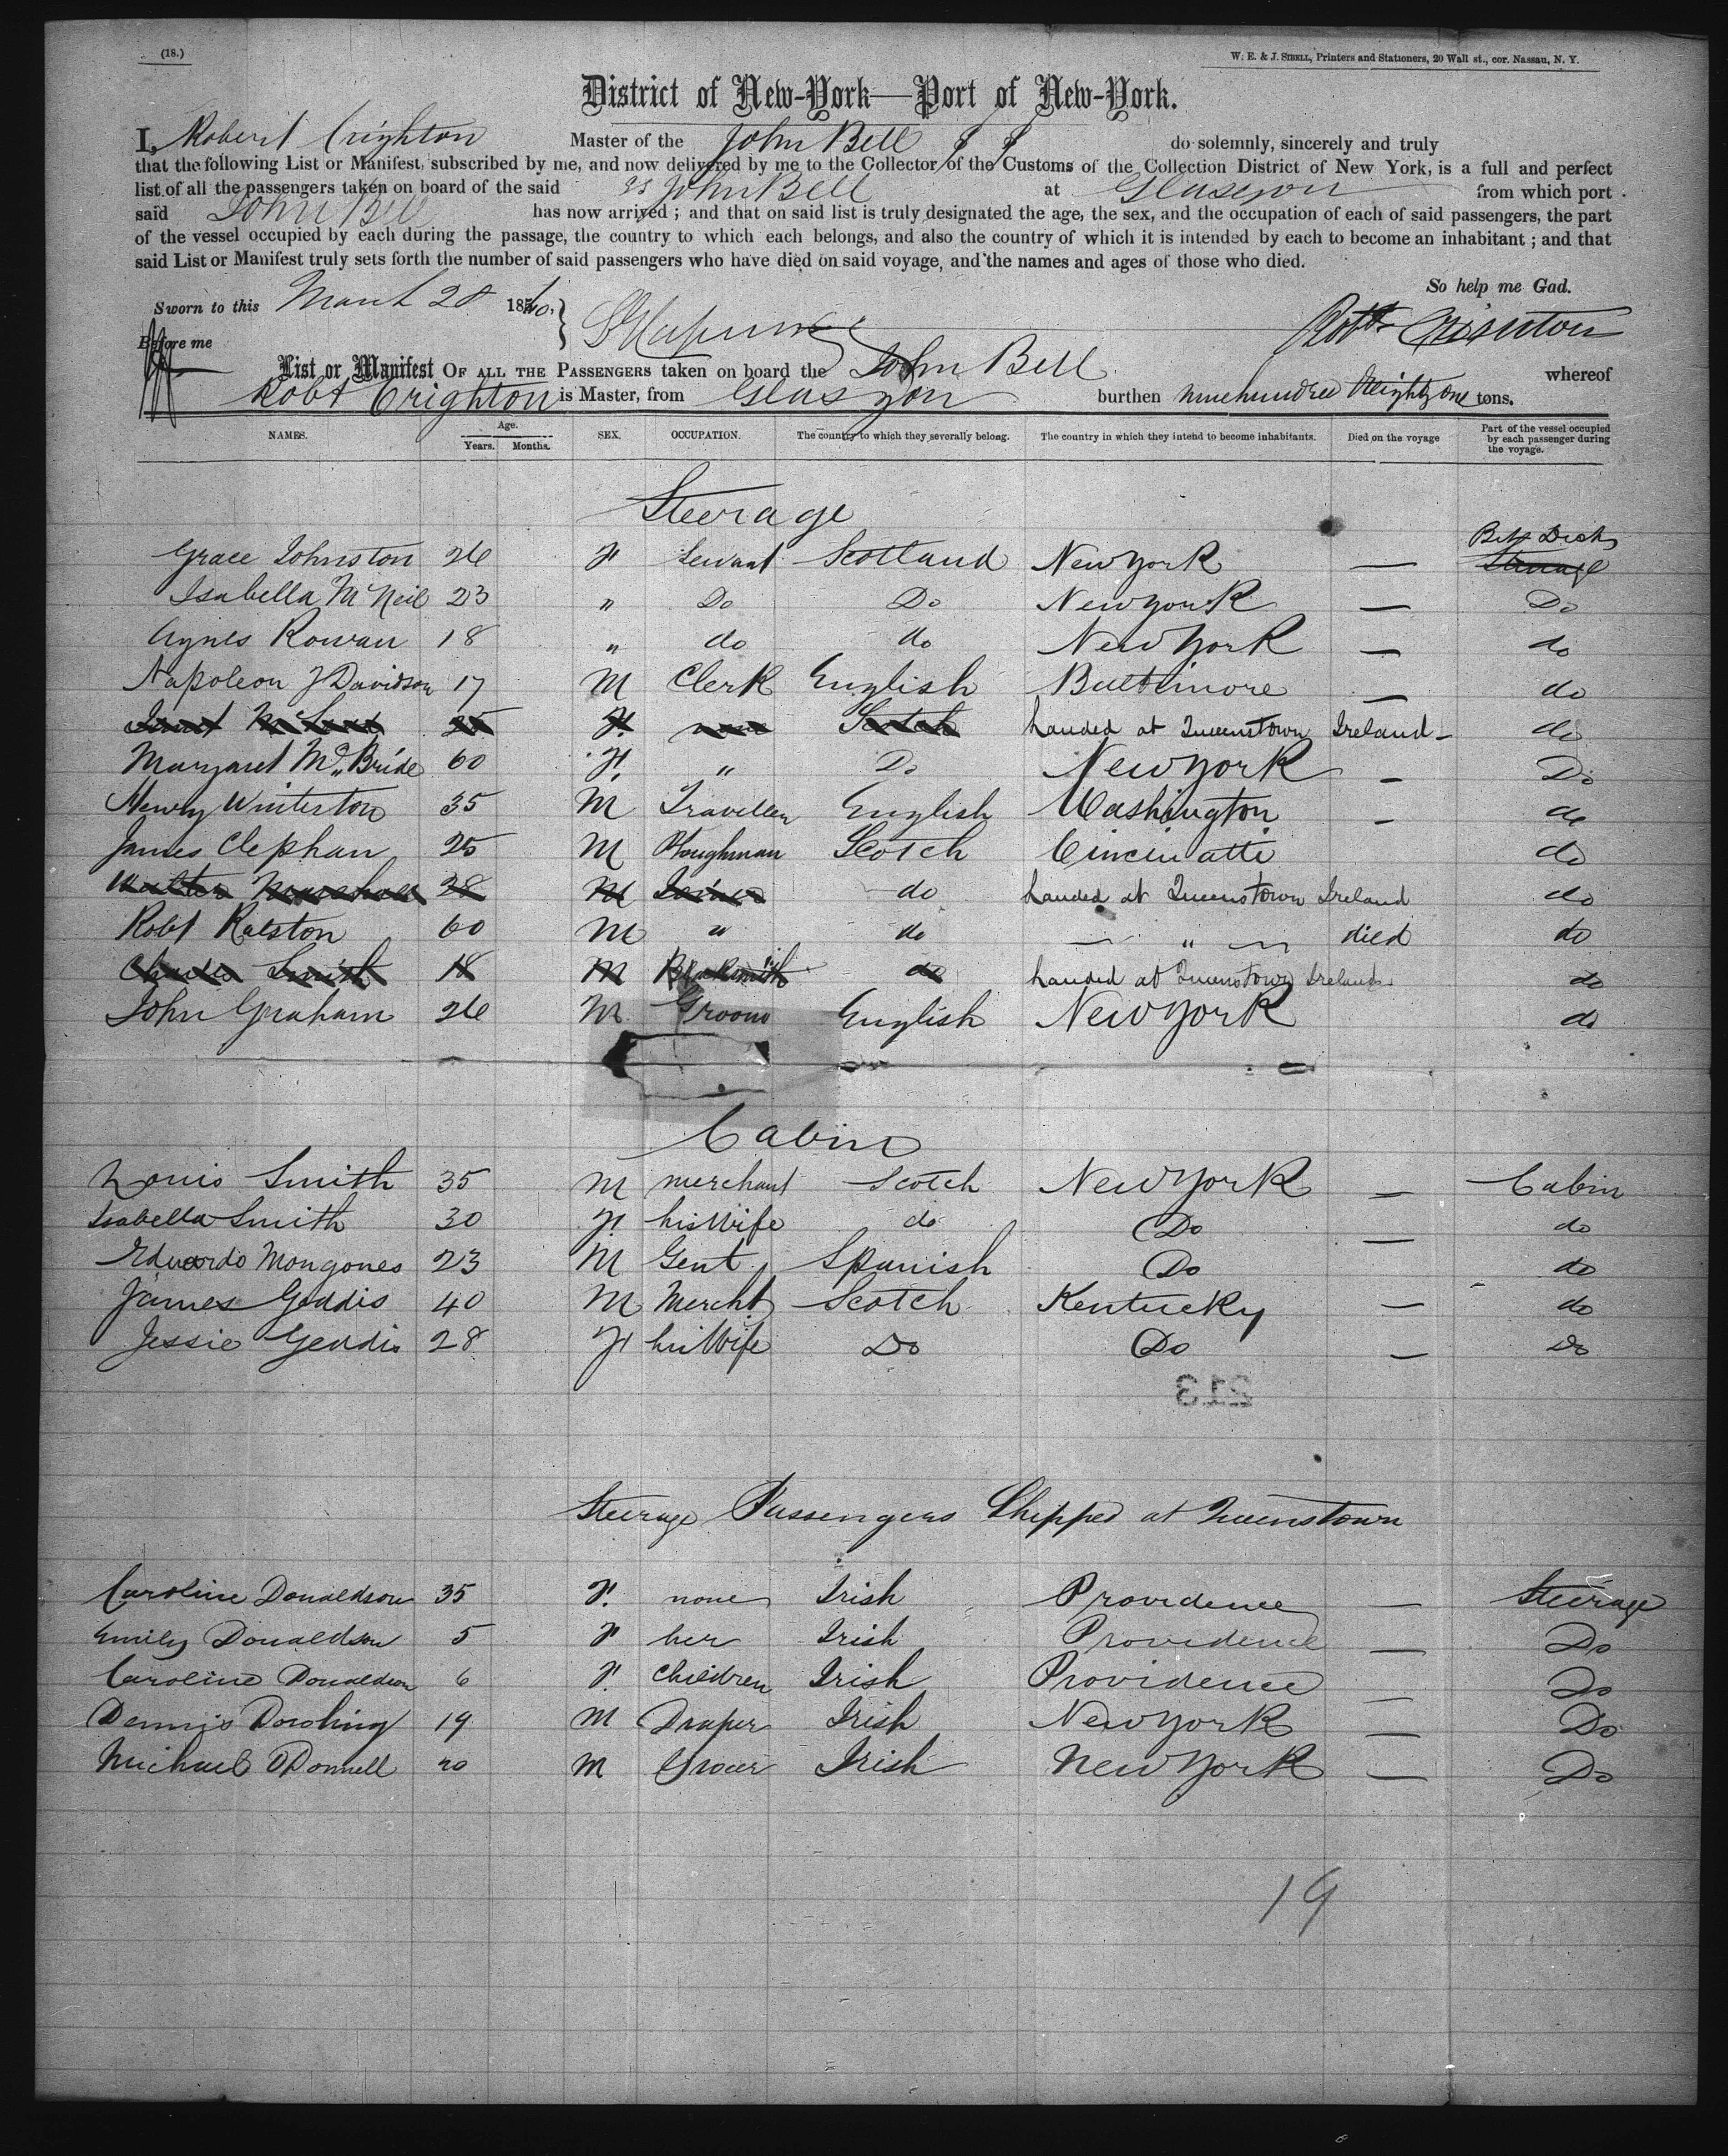 (18.)
W. E. & J. SIBELL, Printers and Stationers, 20 Wall st., cor. Nassau, N. Y.
District of New-York—Port of New-York.
I, Robert Crighton Master of the John Bell do solemnly, sincerely and truly
that the following List or Manifest, subscribed by me, and now delivered by me to the Collector of the Customs of the Collection District of New York, is a full and perfect
list of all the passengers taken on board of the said SS John Bell at Glasgow from which port
said John Bell has now arrived ; and that on said list is truly designated the age, the sex, and the occupation of each of said passengers, the part
of the vessel occupied by each during the passage, the country to which each belongs, and also the country of which it is intended by each to become an inhabitant ; and that
said List or Manifest truly sets forth the number of said passengers who have died on said voyage, and the names and ages of those who died.
So help me Gad.
Sworn to this March 28 1860.
Robt Crighton
Before me
List or Manifest OF ALL THE PASSENGERS taken on board the John Bell whereof
Robt Crighton is Master, from Glasgow burthen ninehundred & eighty one tons.
NAMES. Age. Years. Months. SEX. OCCUPATION. The country to which they severally belong. The country in which they intend to become inhabitants. Died on the voyage Part of the vessel occupied by each passenger during the voyage.
Steerage
Grace Johnston 26 F Servant Scotland New York — Bet Decks Steerage
Isabella McNeil 23 " Do Do New York — Do
Agnes Rowan 18 " do do New York — do
Napoleon J Davidson 17 M Clerk English Baltimore — do
25 F. none Scotch Landed at Queenstown Ireland — do
Margaret McBride 60 F " Do New York — Do
Henry Winterton 35 M Traveller English Washington — do
James Clephan 25 M Ploughman Scotch Cincinatti do
Walter Marshall 28 M Joiner do Landed at Queenstown Ireland do
Robt Ralston 60 M " do — " — died do
Charles Smith 18 M Blaksmith do Landed at Queenstown Ireland do
John Graham 26 M Groom English New York do
Cabin
Louis Smith 35 M merchant Scotch New York — Cabin
Isabella Smith 30 F his Wife do Do — do
Eduardo Mongones 23 M Gent Spanish Do do
James Geddis 40 M Mercht Scotch Kentucky — do
Jessie Geddis 28 F his Wife Do Do — Do
213
Steerage Passengers Shipped at Queenstown
Caroline Donaldson 35 F. none Irish Providence — Steerage
Emily Donaldson 5 F her Irish Providence — Do
Caroline Donaldson 6 F. Children Irish Providence — Do
Dennis Dowling 19 M Draper Irish New York — Do
Michael ODonnell 20 M Grocer Irish New York — Do
19